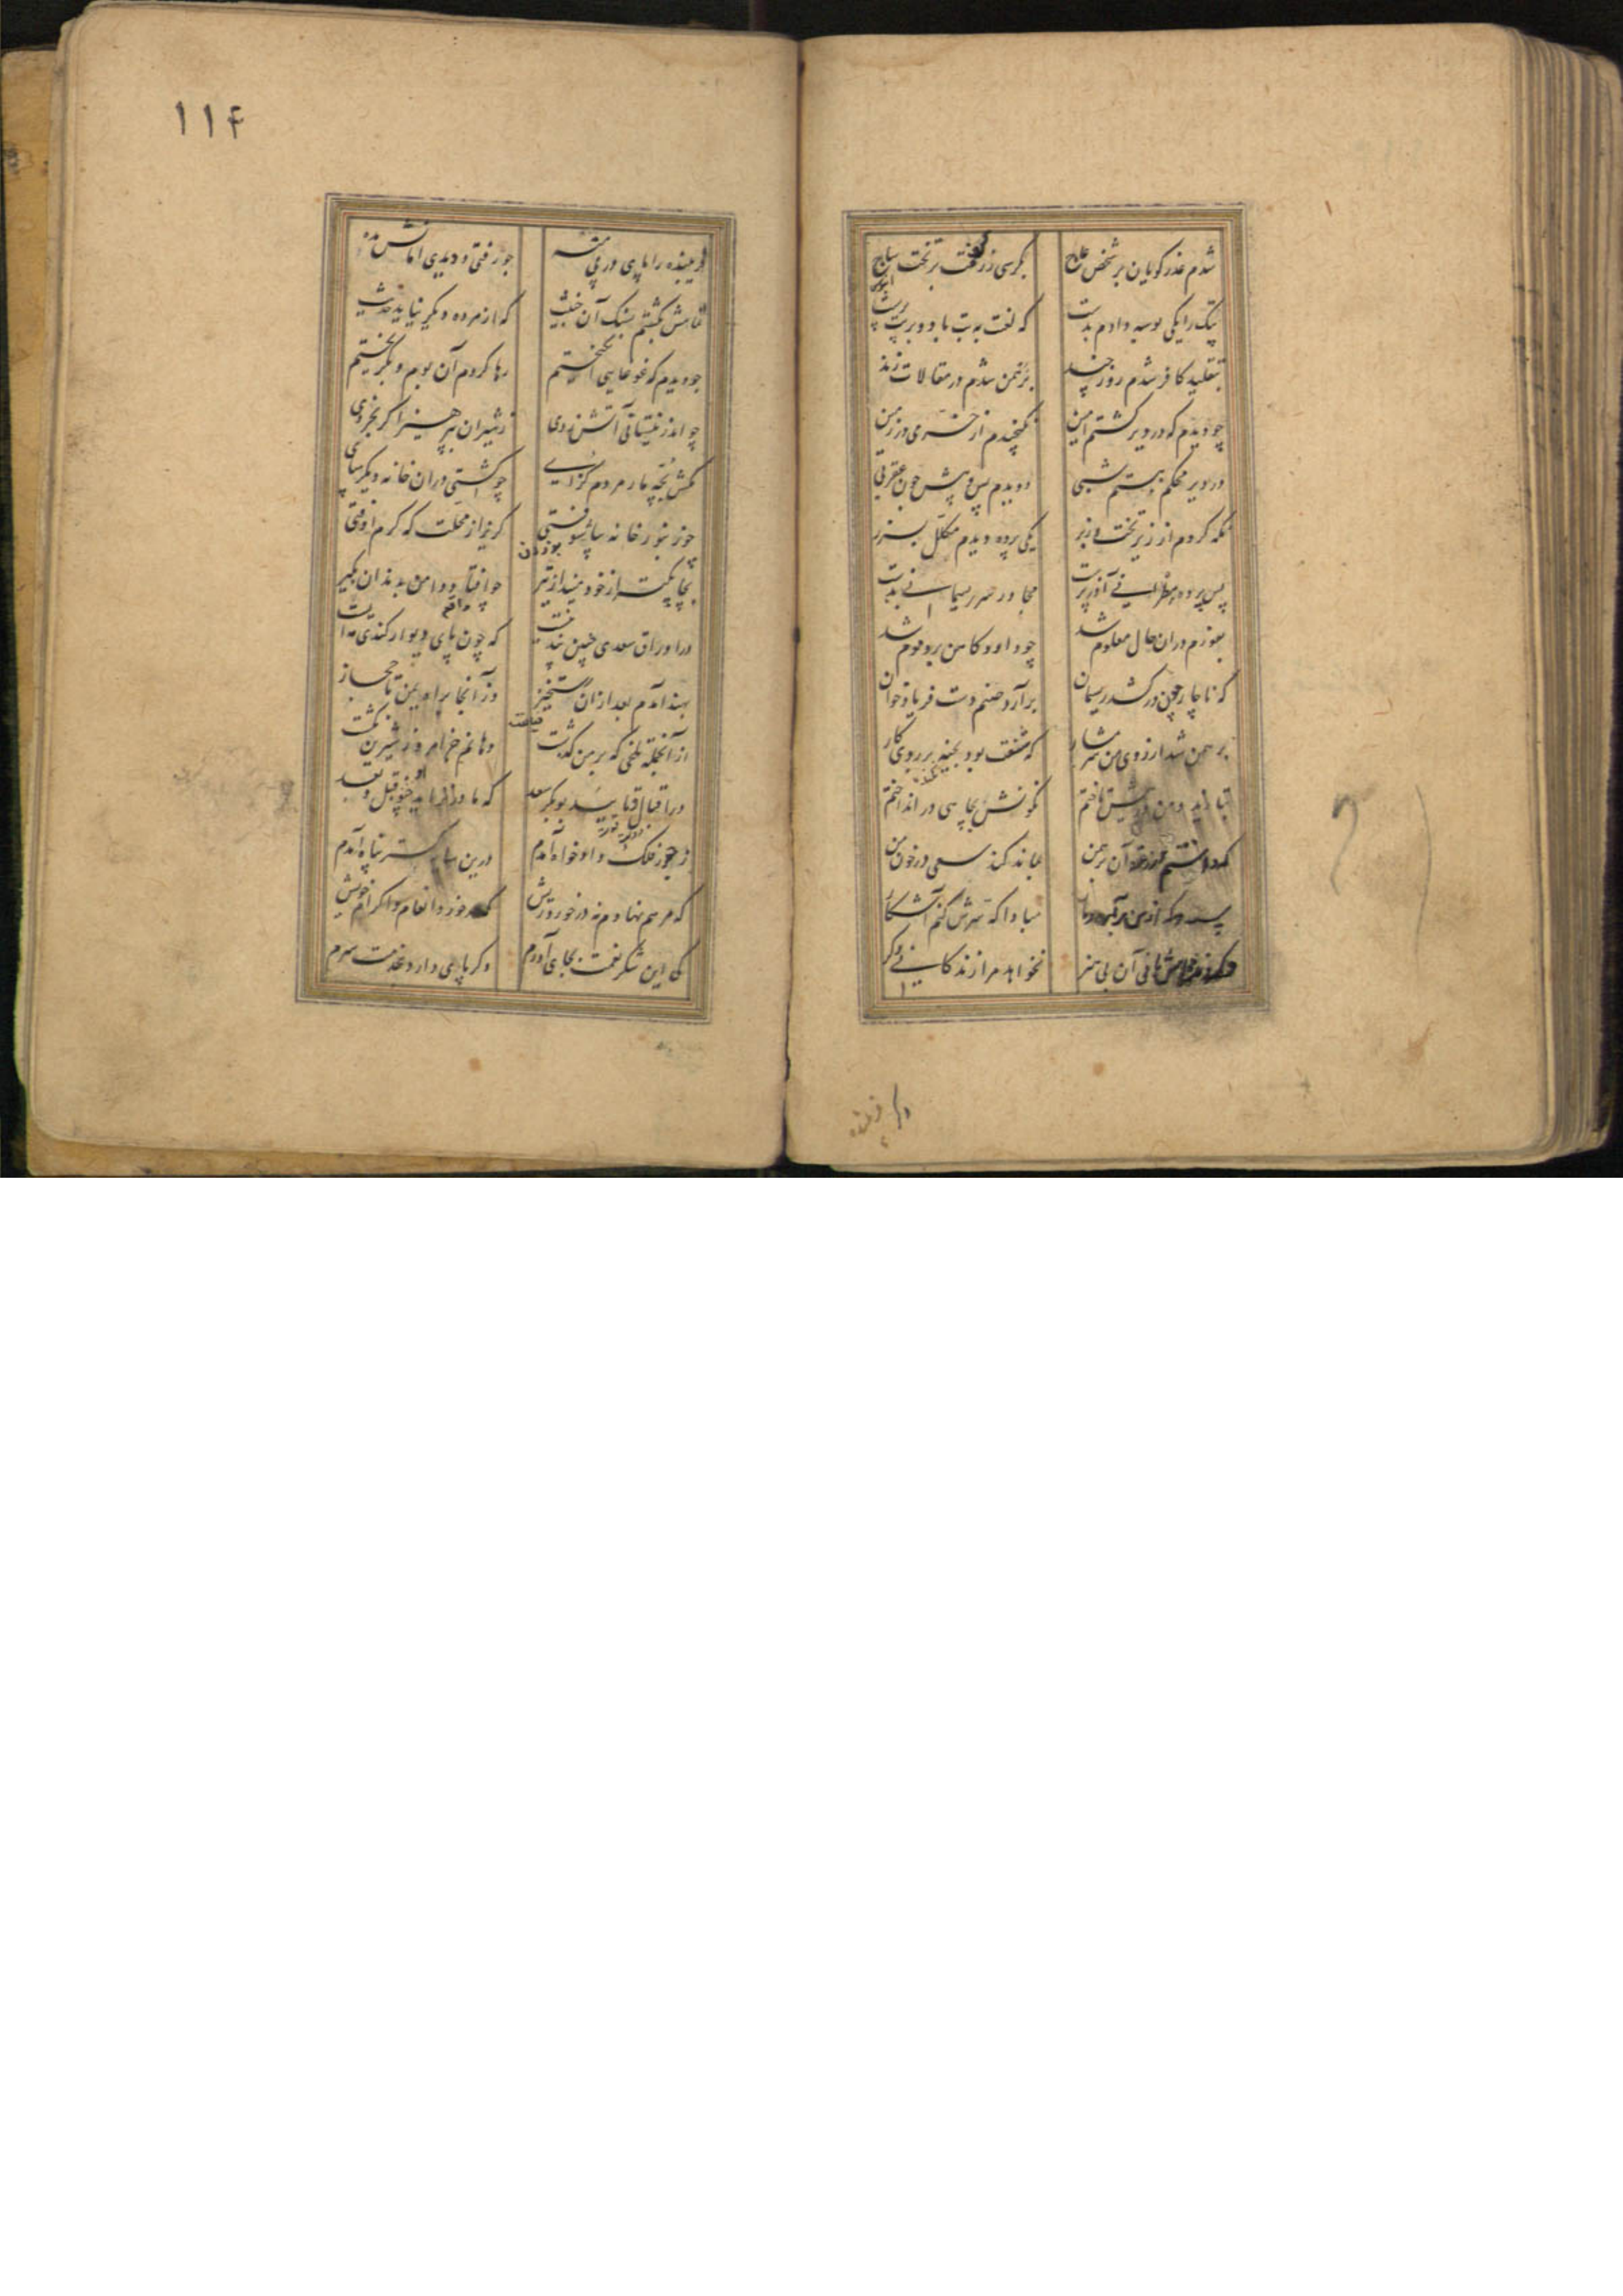 شدم عذر کویان بر شخص عاج بکرسی زر کوفت بر تخت ساج
بتک را یکی بوسه دادم بدست که لعنت برو باد و بر بت پرست
بتقلید کافر شدم روز چند برهمن شدم در مقالات زند
چو دیدم که در دیر کشتم امین نکنجیدم از خرمی در زمین
در دیر محکم ببستم شبی دویدم چپ و پیش چون عقربی
نکه کردم از زیر تخت و زبر یکی پرده دیدم مکلل بزر
پس پرده مطرانی آذرپرست مجاور سر ریسمانی بدست
بفورم دران حال معلوم شد چو داود کاهن برو موم شد
که ناچار چون درکشد ریسمان برآرد صنم دست فریادخوان
برهمن شد از روی من شرمسار که شنعت بود بخیه بر روی کار
بتازید و من در پیش تاختم نکونش بچاهی در انداختم
که دانستم ار زنده آن برهمن بماند کند سعی در خون من
پسندد که از من برآید دمار مبادا که سرش کنم آشکار
نخواهد مرا زندکانی دکر
دکر زنده
۱۱۴
فریبنده را پای در پی منه چو رفتی و دیدی امانش مده
تمامش بکشتم بسنک آن خبیث که از مرده دیکر نیاید حدیث
چو دیدم که غوغایی انکیختم رها کردم آن بوم و بکریختم
چو اندر نیستانی آتش زدی ز شیران بپرهیز اکر بخردی
مکش بچه مار مردم کزای چو کشتی دران خانه دیکر مپای
چو زنبور خانه بیاشوفتی کریز از محلت که کرم اوفتی
بچابکتر از خود مینداز تیر چو افتاد دامن بدندان بکیر
در اوراق سعدی چنین پند نیست که چون پای دیوار کندی مایست
بهند آمدم بعد ازان رستخیز وز آنجا براه یمن تا حجاز
از آنجمله تلخی که بر من کذشت دهانم جز امروز شیرین نکشت
در اقبال و تایید بوبکر سعد که مادر نزاید چو او قبل و بعد
ز جور فلک دادخواه آمدم درین سایه کستر پناه آمدم
که مرهم نهادم نه در خورد ریش که در خورد انعام و اکرام خویش
کی این شکر نعمت بجای آورم وکر پای دارد بخدمت سرم